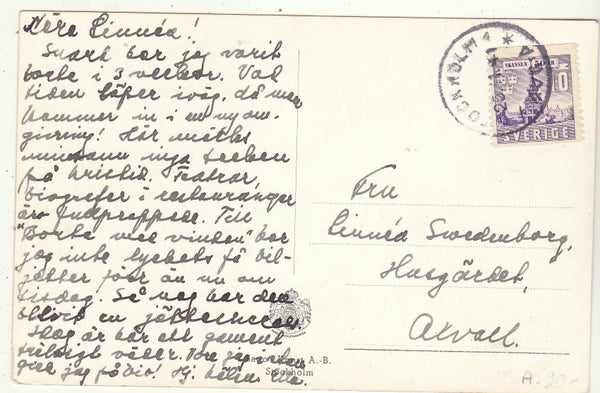 Kära Linnéa!
Snart har jag varit
borta i 3 veckor. Vad
tiden löper iväg, då man
kommer in i en ny om-
givning! Här märks
minsann inga tecken
på kristid. Teatrar,
biografer i restauranger
äro fullproppade. Till
"Borta med vinden" har
jag inte lyckats få bil-
jetter förr än nu om
tisdag. Så nog har den
blivit en
Idag är här ett gement
väder.
jag på bio! Hj. häls.
STOCKHOLM 1
SKANSEN
10
SVERIGE
Fru
Linnéa Swedenborg,
Husgärdet,
Axvall.
A.-B.
Stockholm
A. 20:-